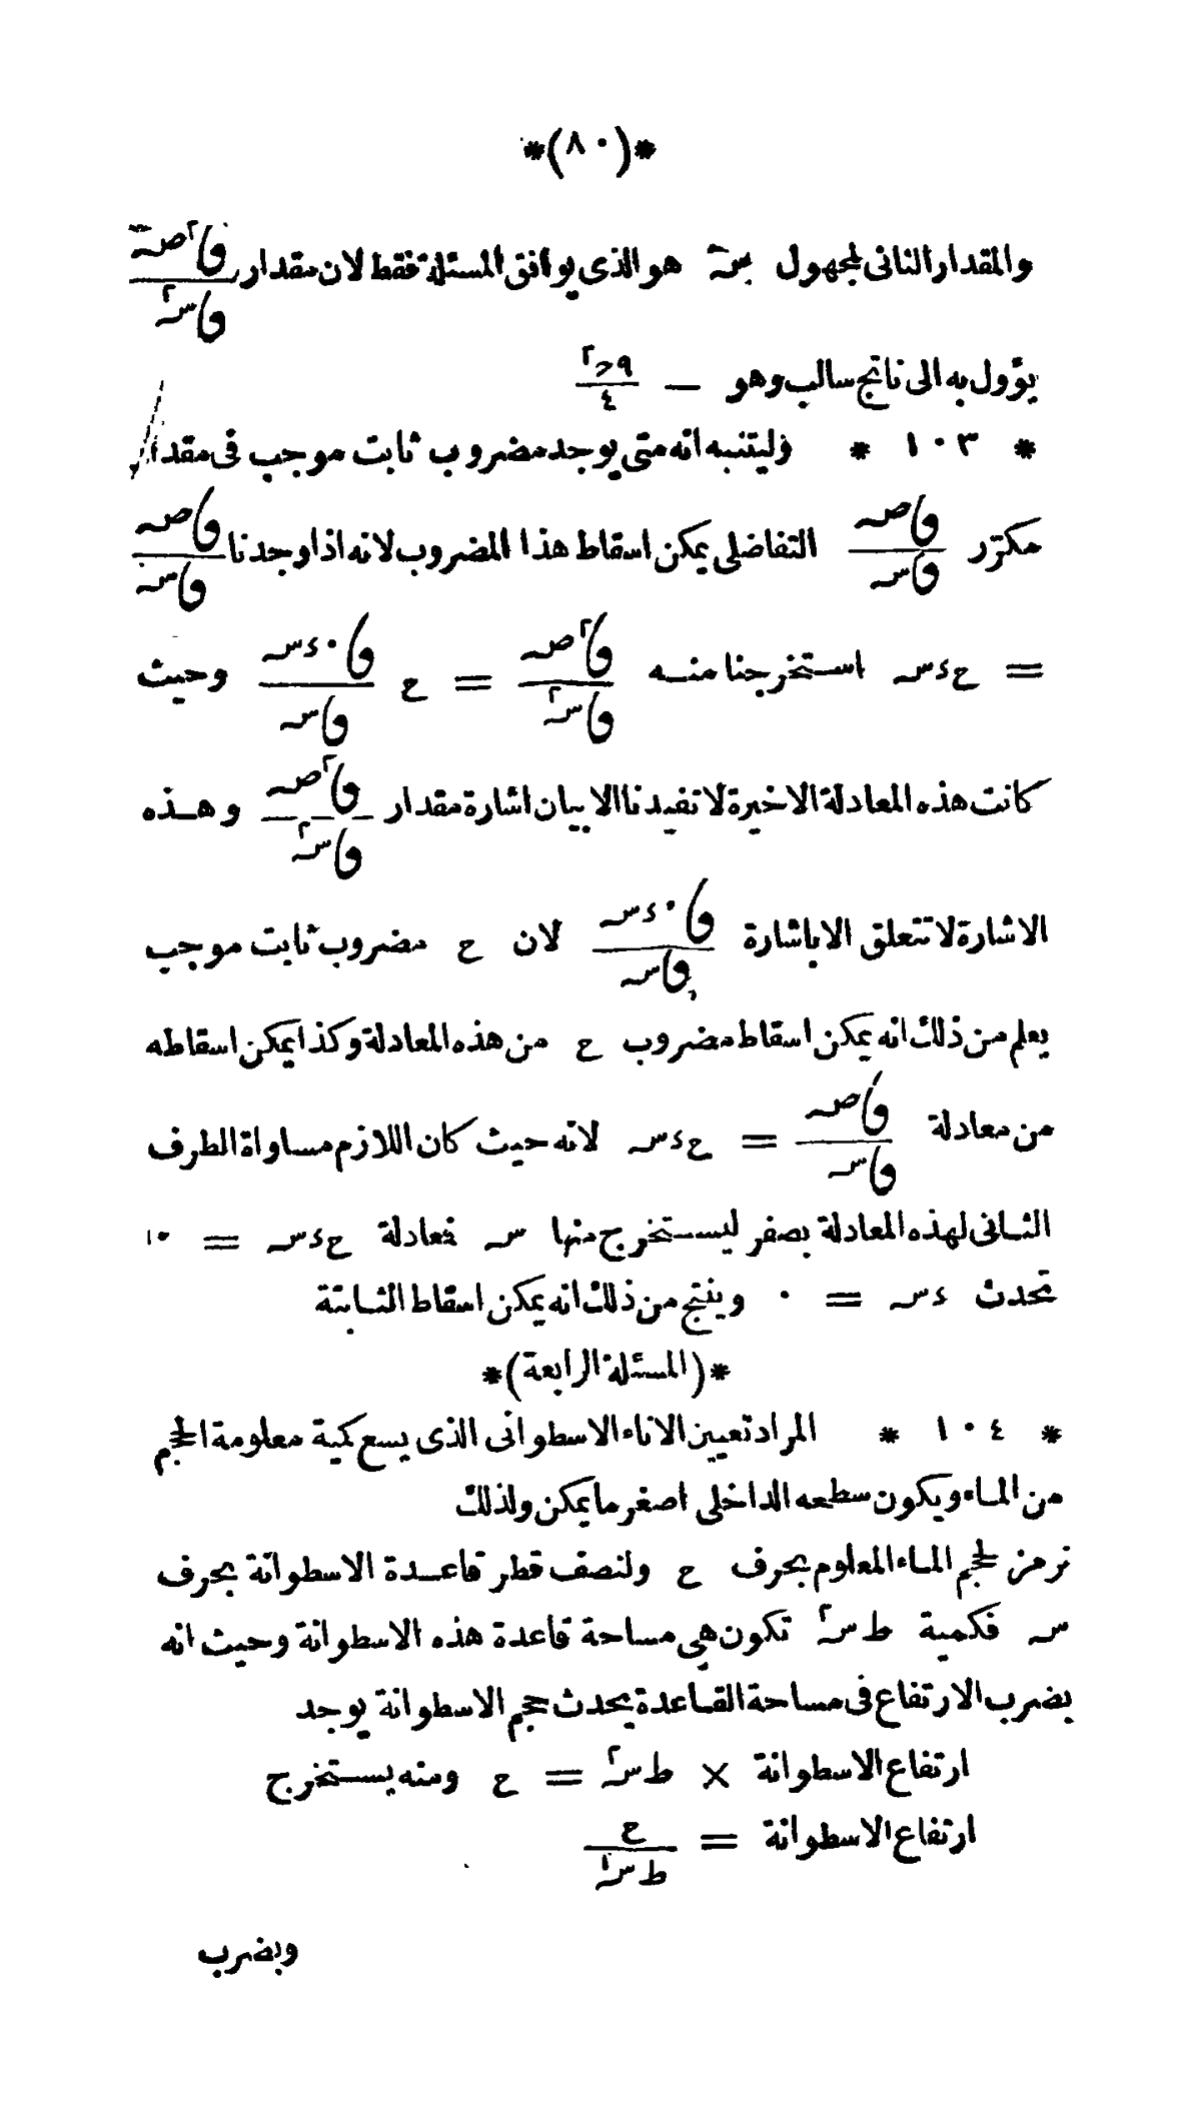 *(٨٠)*
والمقدار الثانى لمجهول سہ هو الذى يوافق المسئلة فقط لان مقدار ڡا٢صہ / ڡاسہ٢
يؤول به الى ناتج سالب وهو — ٩ح٢ / ٤
* ١٠٣ * وليتنبه انه متى يوجد مضروب ثابت موجب فى مقدار
مكرّر ڡاصہ / ڡاسہ التفاضلى يمكن اسقاط هذا المضروب لانه اذا وجدنا ڡاصہ / ڡاسہ
= ح ءسہ استخرجنا منه ڡا٢صہ / ڡاسہ٢ = ح ڡا٠ءسہ / ڡاسہ وحيث
كانت هذه المعادلة الاخيرة لا تفيدنا الا بيان اشارة مقدار ڡا٢صہ / ڡاسہ٢ وهذه
الاشارة لا تتعلق الا باشارة ڡا٠ءسہ / ڡاسہ لان ح مضروب ثابت موجب
يعلم من ذلك انه يمكن اسقاط مضروب ح من هذه المعادلة وكذا يمكن اسقاطه
من معادلة ڡاصہ / ڡاسہ = ح ءسہ لانه حيث كان اللازم مساواة الطرف
الثانى لهذه المعادلة بصفر ليستخرج منها سہ فعادلة ح ءسہ = ٠
تحدث ءسہ = ٠ وينتج من ذلك انه يمكن اسقاط الثابتة
*(المسئلة الرابعة)*
* ١٠٤ * المراد تعيين الاناء الاسطوانى الذى يسع كمية معلومة الحجم
من الماء ويكون سطحه الداخلى اصغر ما يمكن ولذلك
نرمز لحجم الماء المعلوم بحرف ح ولنصف قطر قاعدة الاسطوانة بحرف
سہ فكمية ط سہ٢ تكون هى مساحة قاعدة هذه الاسطوانة وحيث انه
بضرب الارتفاع فى مساحة القاعدة يحدث حجم الاسطوانة يوجد
ارتفاع الاسطوانة × ط سہ٢ = ح ومنه يستخرج
ارتفاع الاسطوانة = ح / ط سہ٢
وبضرب